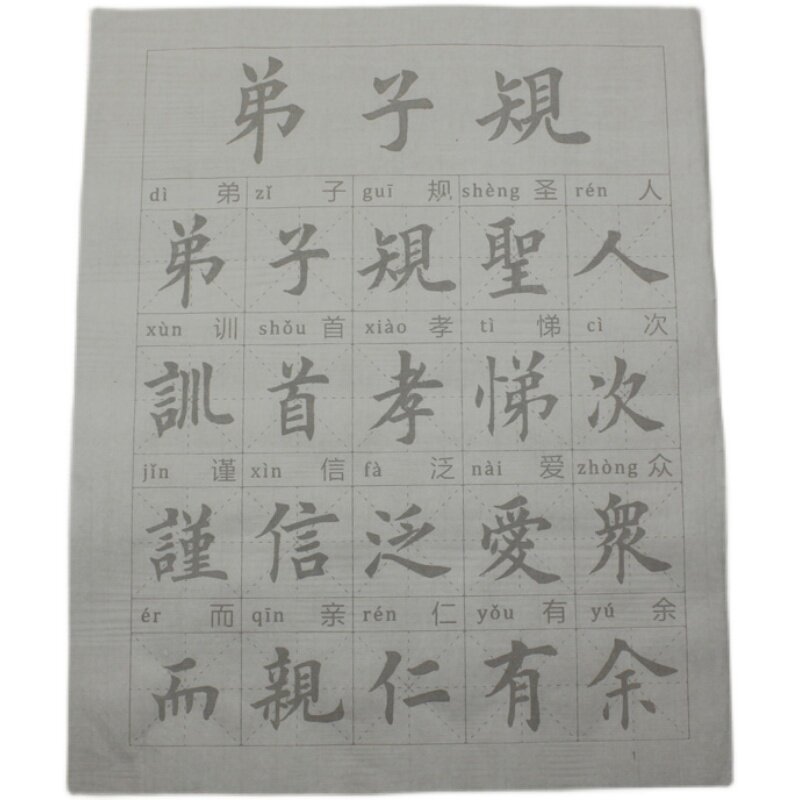 弟子規
dì 弟 zǐ 子 guī 规 shèng 圣 rén 人
弟子規聖人
xùn 训 shǒu 首 xiào 孝 tì 悌 cì 次
訓首孝悌次
jǐn 谨 xìn 信 fà 泛 nài 爱 zhòng 众
謹信泛愛衆
ér 而 qīn 亲 rén 仁 yǒu 有 yú 余
而親仁有余